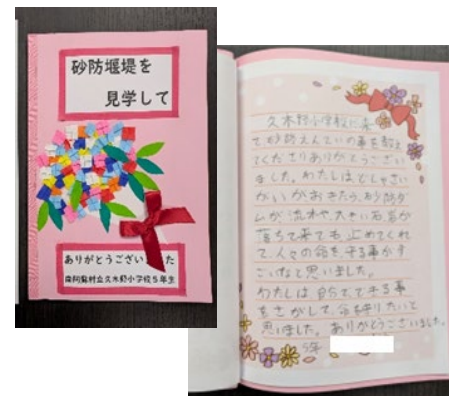 砂防堰堤を
見学して
ありがとうございました
南阿蘇村立久木野小学校5年生
久木野小学校に来
て、砂防えんていの事を教え
てくださりありがとうござい
ました。わたしは、どしゃさい
がいがおきたら、砂防ダ
ムが流木や、大きい石などが
落ちて来ても、止めてくれ
て、人々の命を守る事がす
ごいなと思いました。
わたしは、自分で、できる事
をさがして、命を守りたいと
思いました。ありがとうございました。
5年